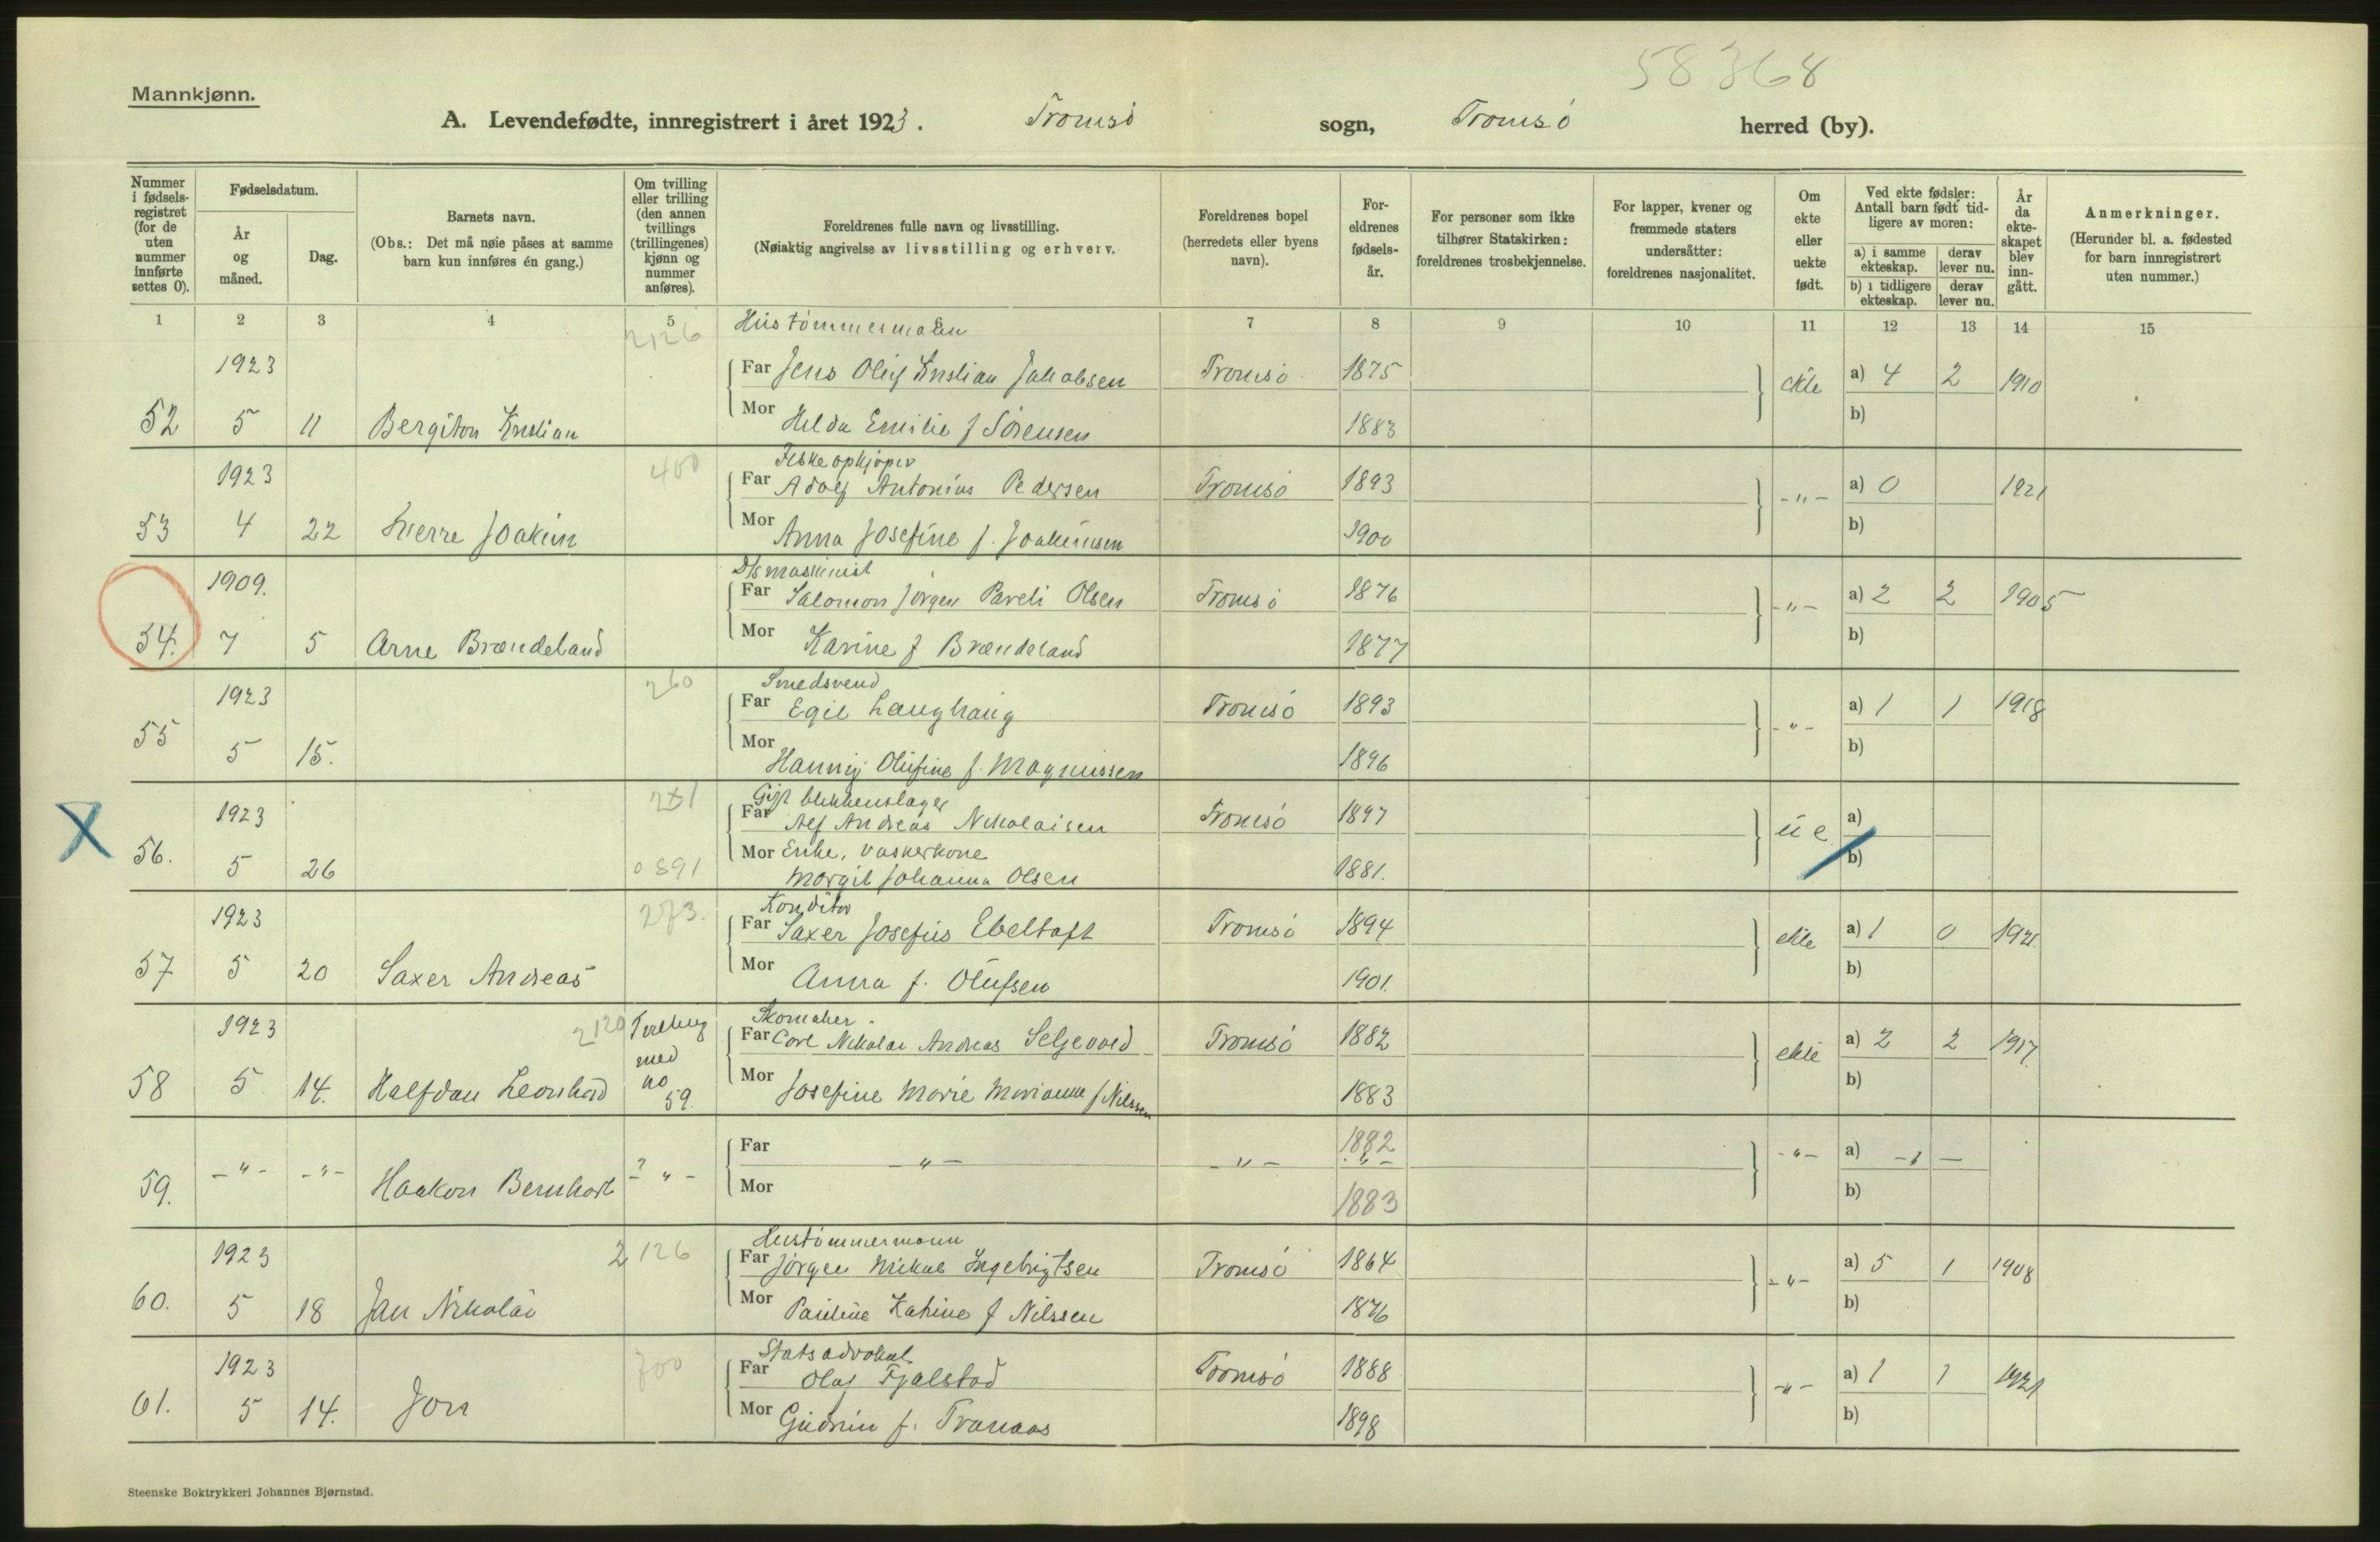 58368
Mannkjønn.
A. Levendefødte, innregistrert i året 1923. Tromsø sogn, Tromsø herred (by).
Nummer i fødsels-registret (for de uten nummer innførte settes 0).
Fødselsdatum.
År og måned.
Dag.
Barnets navn.
(Obs.: Det må nøie påses at samme barn kun innføres én gang.)
Om tvilling eller trilling (den annen tvillings (trillingenes) kjønn og nummer anføres).
Foreldrenes fulle navn og livsstilling.
(Nøiaktig angivelse av livsstilling og erhverv.
Foreldrenes bopel (herredets eller byens navn).
For-eldrenes fødsels-år.
For personer som ikke tilhører Statskirken: foreldrenes trosbekjennelse.
For lapper, kvener og fremmede staters undersåtter: foreldrenes nasjonalitet.
Om ekte eller uekte født.
Ved ekte fødsler: Antall barn født tid-ligere av moren:
a) i samme ekteskap. derav lever nu.
b) i tidligere ekteskap. derav lever nu.
År da ekte-skapet blev inn-gått.
Anmerkninger.
(Herunder bl. a. fødested for barn innregistrert uten nummer.)
1 2 3 4 5 6 7 8 9 10 11 12 13 14 15
2126 Hustømmermann
1923 Far Jens Oluf Kristian Jakobsen Tromsø 1875 ekte a) 4 2 1910
52 5 11 Bergiton Kristian Mor Hilda Emilie f Sørensen 1883 b)
400 Fiskeopkjøper
1923 Far Adolf Antonius Pedersen Tromsø 1893 -"- a) 0 1921
53 4 22 Sverre Joakim Mor Anna Josefine f. Joakimsen 1900 b)
D/s maskinist
1909. Far Salomon Jørgen Pareli Olsen Tromsø 1876 -"- a) 2 2 1905
54. 7 5 Arne Brændeland Mor Karine f Brændeland 1877 b)
260 Smedsvend
1923 Far Egil Langhaug Tromsø 1893 -"- a) 1 1 1918
55 5 15. Mor Hanny Olufine f. Magnussen 1896 b)
Gift blikkenslager
1923 Far Alf Andreas Nikolaisen Tromsø 1897 ue a)
X 56. 5 26 0891 Mor Enke, vaskerkone Margit Johanna Olsen 1881. b)
273. Konditor
1923 Far Saxer Josefus Ebeltoft Tromsø 1894 ekte a) 1 0 1921.
57 5 20 Saxer Andreas Mor Anna f. Olufsen 1901. b)
2120 Tvilling med no 59. Skomaker
1923 Far Carl Nikolai Andreas Seljevold Tromsø 1882 ekte a) 2 2 1917.
58 5 14. Halfdan Leonhard Mor Josefine Marie Marianna f Nilssen 1883 b)
-"- -"- Far -"- -"- 1882 -"- a) -"-
59. Haakon Bernhart ? -"- Mor 1883 b)
2126 Hustømmermann
1923 Far Jørgen Mikal Ingebrigtsen Tromsø 1864 -"- a) 5 1 1908
60. 5 18 Jan Nikolai Mor Pauline Katrine f Nilssen 1876 b)
700 Statsadvokat
1923 Far Olaf Fjalstad Tromsø 1888 -"- a) 1 1 1921
61. 5 14. Jon Mor Gudrun f. Tranaas 1898 b)
Steenske Boktrykkeri Johannes Bjørnstad.